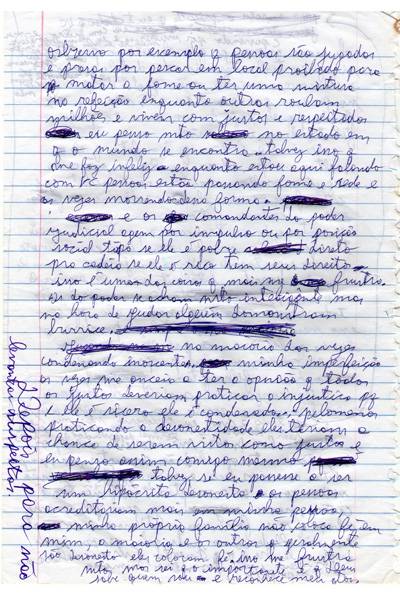 observo por exemplo q pessoas são jugadas
e presas por pescar em local proibido para
matar a fome ou ter uma mistura
na refeição enquanto outros roubam
milhões e vivem com justos e respeitados
eu penso não no estado em
q o mundo se encontra talvez iso q
me faz infeliz enquanto estou aqui falando
com vc pessoas estão pasando fome e sede e
as vezes morrendo desa forma
e os comandantes do poder
judicial agem por impulso ou por posição
social tipo se ele e pobre direto
pra cadeia se ele o rica tem seus direito
iso é uma das coisas q mais me frustra
os do poder se acham mto inteligente mas
na hora de judar alguem demonstram
burrice
na maioria das vezes
condenando inocentes minha imperfeição
as vezes me anceia a ter a opinião q todos
os justos deveriam praticar a injustiça pq
ele é sincero ele é condenado pelo menos
praticando a desonestidade eles teriam a
chance de serem vistos como justos e
eu penso asim comigo mesmo
talvez se eu pasase a ser
um hipócrita desonesto as pessoas
acreditariam mais minha pessoa,
minha própria família não coloca fé em
mim, a maioria e os outros q geralmente
são desonesto eles colocam fé iso me frustra
mto, mas sei q o importante é q
sabe quem sou e reconhece meus
Depois para não
levantar suspeitas,